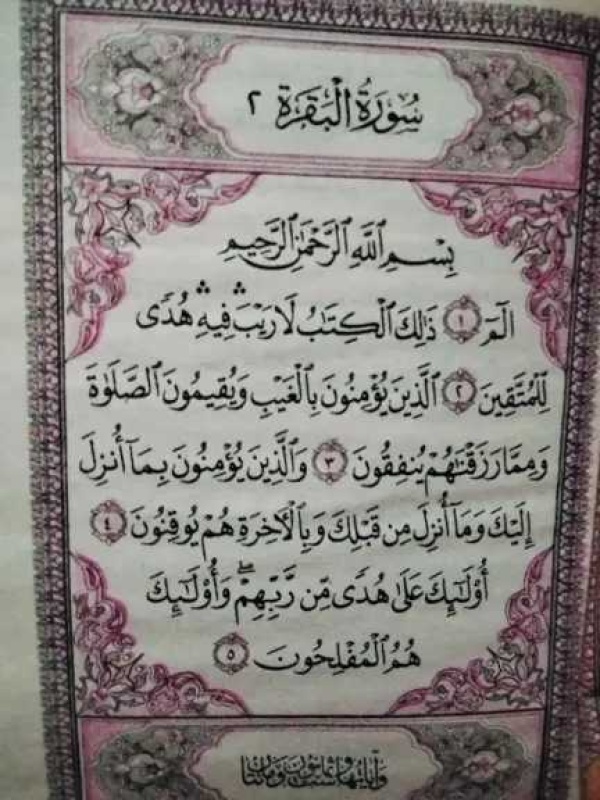 سُورَةُ الْبَقَرَةِ ٢
بِسْمِ اللَّهِ الرَّحْمَٰنِ الرَّحِيمِ
الٓمٓ ١ ذَٰلِكَ الْكِتَابُ لَا رَيْبَ ۛ فِيهِ ۛ هُدًى
لِّلْمُتَّقِينَ ٢ الَّذِينَ يُؤْمِنُونَ بِالْغَيْبِ وَيُقِيمُونَ الصَّلَاةَ
وَمِمَّا رَزَقْنَاهُمْ يُنفِقُونَ ٣ وَالَّذِينَ يُؤْمِنُونَ بِمَا أُنزِلَ
إِلَيْكَ وَمَا أُنزِلَ مِن قَبْلِكَ وَبِالْآخِرَةِ هُمْ يُوقِنُونَ ٤
أُولَٰئِكَ عَلَىٰ هُدًى مِّن رَّبِّهِمْ ۖ وَأُولَٰئِكَ
هُمُ الْمُفْلِحُونَ ٥
وَآيَاتُهَا سِتٌّ وَثَمَانُونَ وَمِائَتَانِ